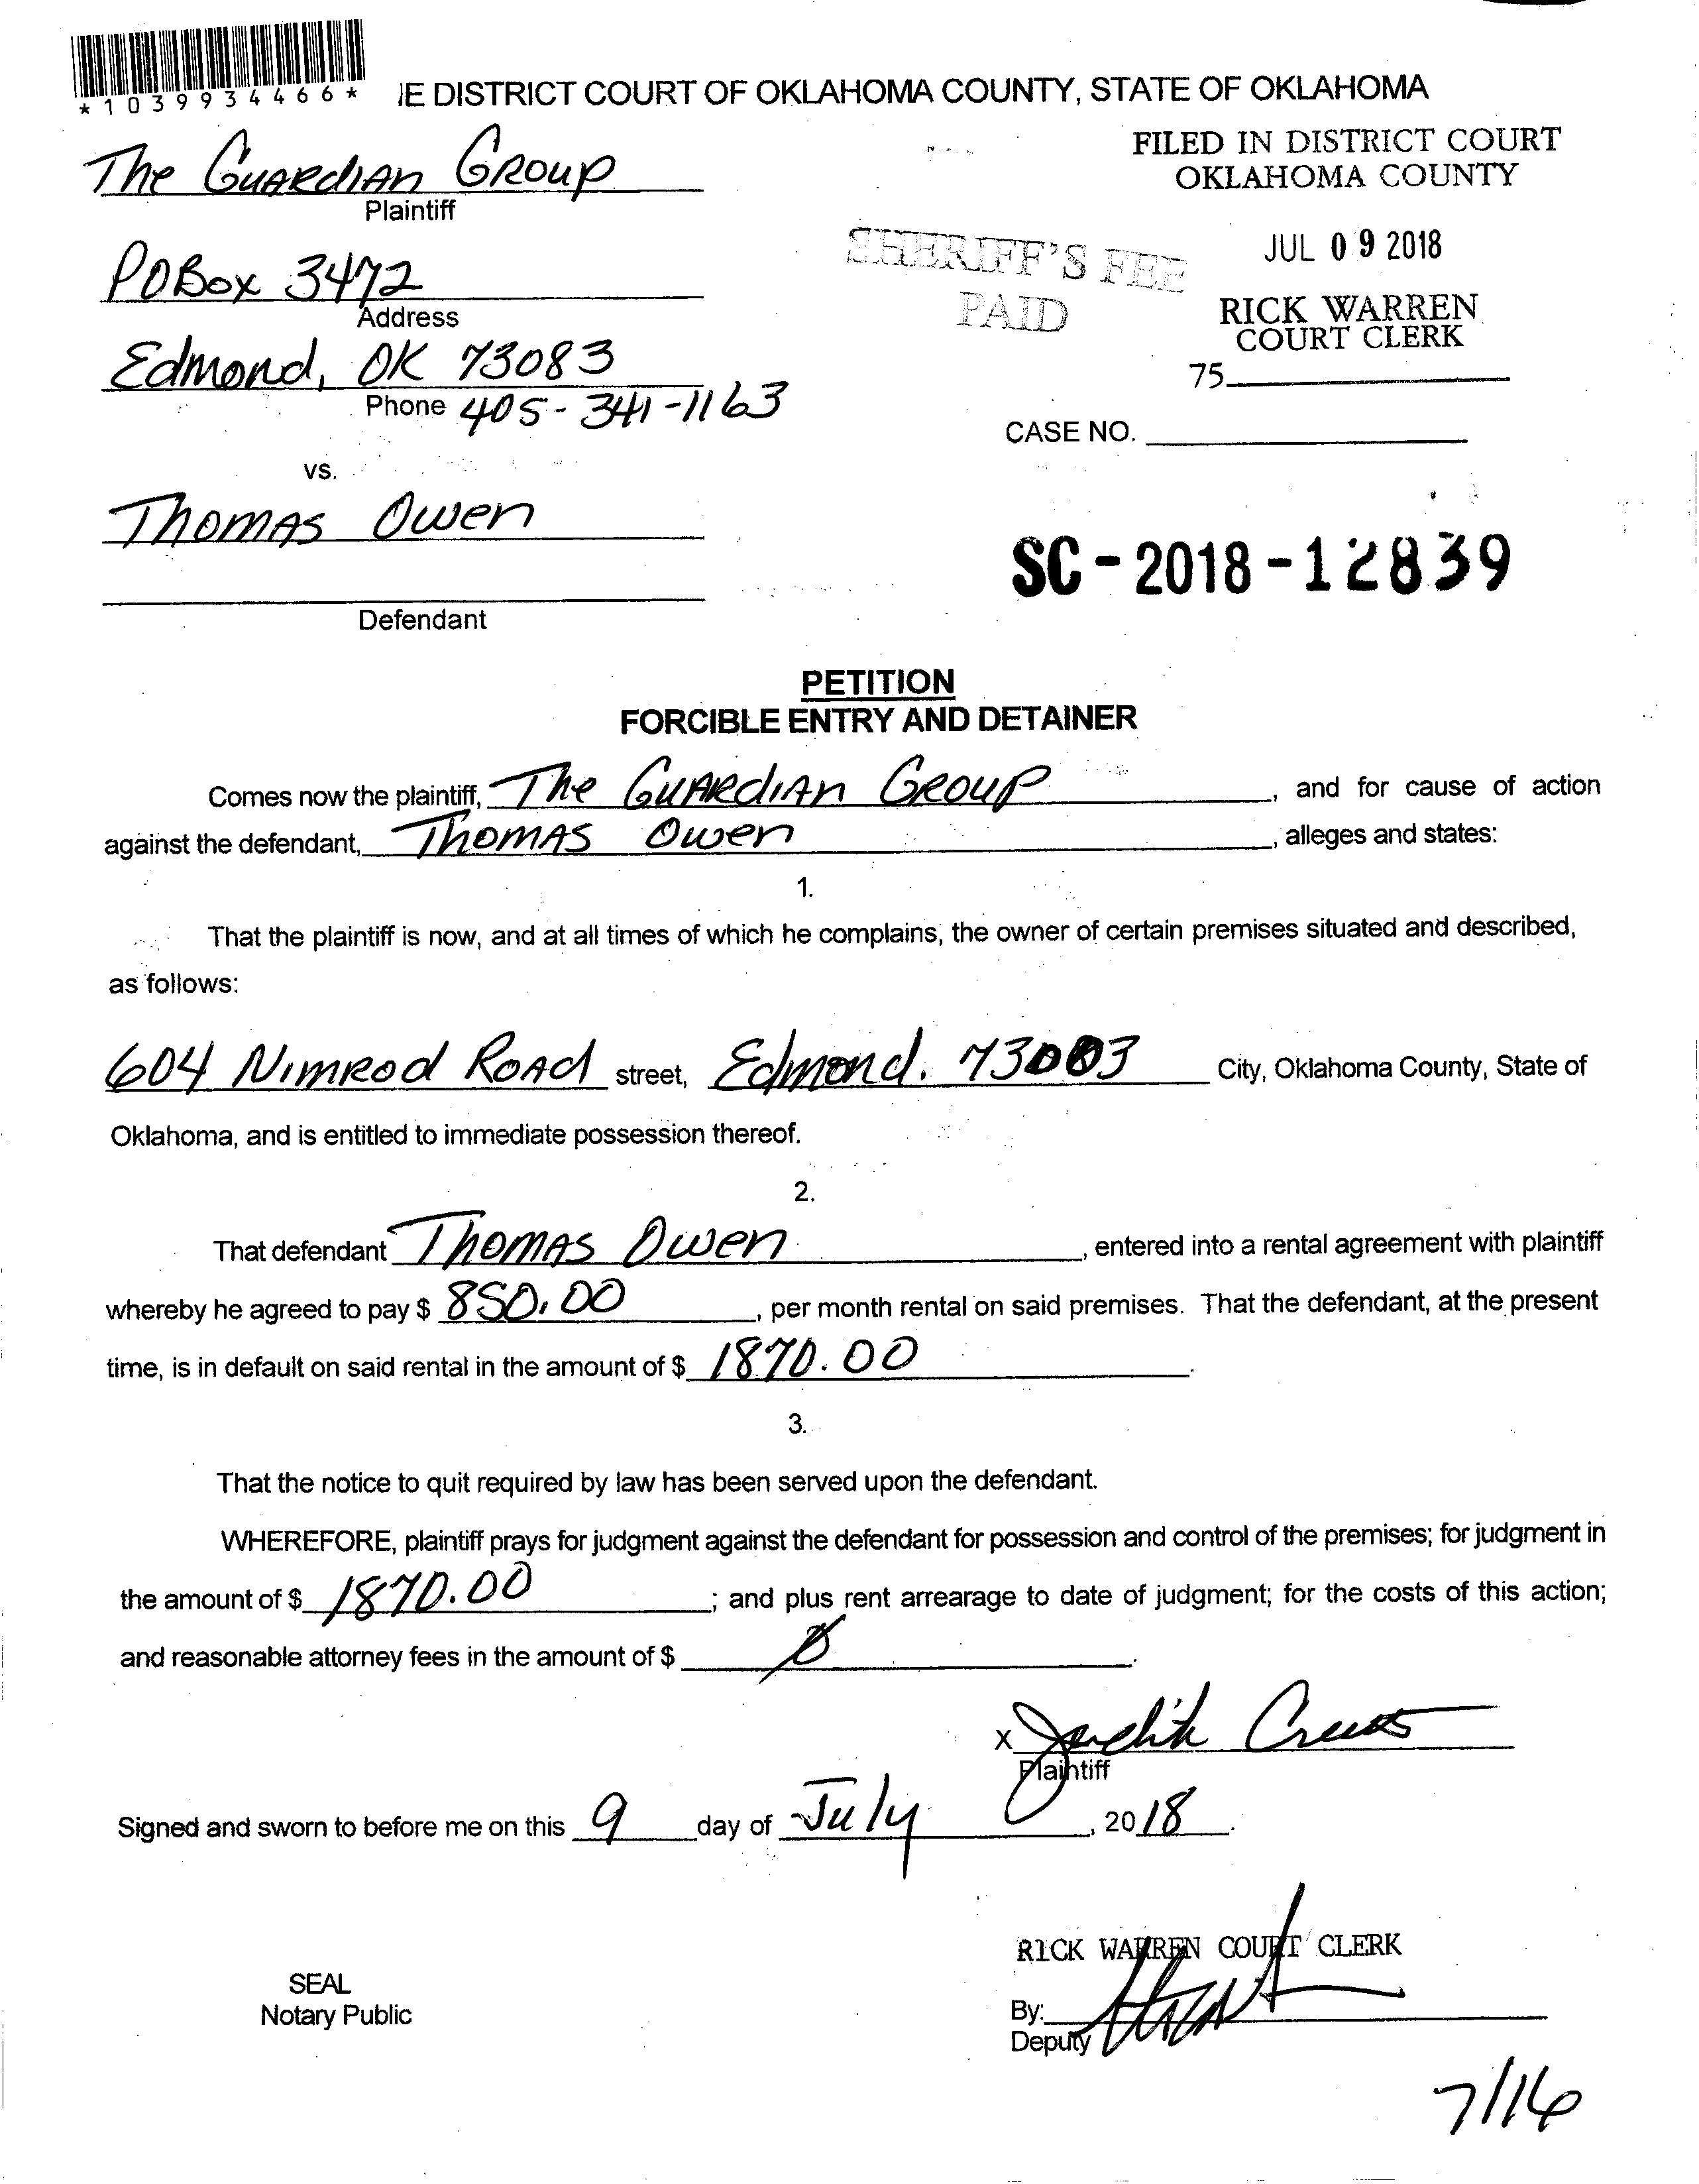 *1039934466*
IE DISTRICT COURT OF OKLAHOMA COUNTY, STATE OF OKLAHOMA
FILED IN DISTRICT COURT
OKLAHOMA COUNTY
The Guardian Group
Plaintiff
SHERIFF'S FEE
PAID
JUL 09 2018
PO Box 3472
Address
RICK WARREN
COURT CLERK
Edmond, OK 73083
75
Phone 405-341-1163
CASE NO.
vs.
Thomas Owen
SC-2018-12839
Defendant
PETITION
FORCIBLE ENTRY AND DETAINER
Comes now the plaintiff, The Guardian Group, and for cause of action
against the defendant, Thomas Owen, alleges and states:
1.
That the plaintiff is now, and at all times of which he complains, the owner of certain premises situated and described,
as follows:
604 Nimrod Road street, Edmond. 73003 City, Oklahoma County, State of
Oklahoma, and is entitled to immediate possession thereof.
2.
That defendant Thomas Owen, entered into a rental agreement with plaintiff
whereby he agreed to pay $ 850.00, per month rental on said premises. That the defendant, at the present
time, is in default on said rental in the amount of $ 1870.00.
3.
That the notice to quit required by law has been served upon the defendant.
WHEREFORE, plaintiff prays for judgment against the defendant for possession and control of the premises; for judgment in
the amount of $ 1870.00; and plus rent arrearage to date of judgment; for the costs of this action;
and reasonable attorney fees in the amount of $ Ø.
X Judith
Plaintiff
Signed and sworn to before me on this 9 day of July, 2018.
RICK WARREN COURT CLERK
SEAL
Notary Public
By:
Deputy
7/16